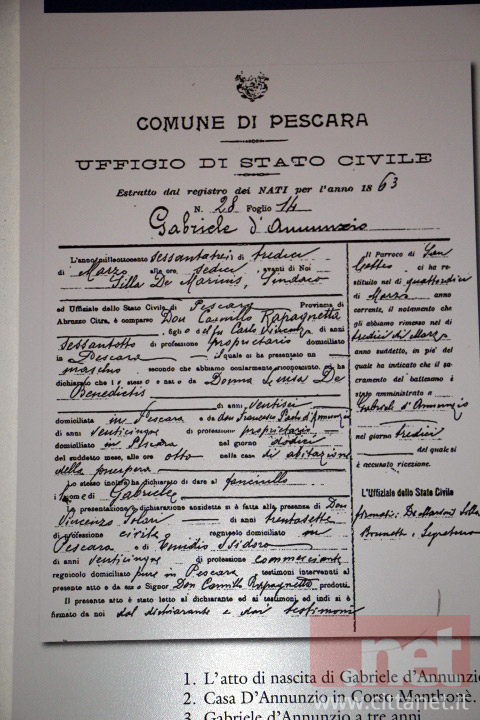 COMUNE DI PESCARA
UFFICIO DI STATO CIVILE
Estratto dal registro dei NATI per l'anno 1863
N. 28 Foglio 14
Gabriele d'Annunzio
L'anno milleottocento sessantatreis di tredici
di Marzo alle ore sedici, avanti di Noi
Silla De Marinis, Sindaco
ed Uffiziale dello Stato Civile di Pescara Provincia di
Abruzzo Citra, è comparso Don Camillo Rapagnetta
figlio del fu Carlo Vincenzo di anni
sessantotto di professione proprietario domiciliato
in Pescara il quale ci ha presentato un
maschio secondo che abbiamo ocularmente riconosciuto, ed ha
dichiarato che lo stesso è nato da Donna Luisa De
Benedictis
di anni ventisei
domiciliata in Pescara e da don Francesco Paolo d'Annunzio
di anni venticinque di professione proprietario
domiciliato in Pescara nel giorno dodici
del suddetto mese, alle ore otto nella casa di abitazione
della puerpera
Lo stesso inoltre ha dichiarato di dare al fanciullo
il nome di Gabriele
La presentazione e dichiarazione anzidetta si è fatta alla presenza di Don
Vincenzo Solari di anni trentasette
di professione civile regnicolo domiciliato in
Pescara e di Isidoro
di anni venticinque di professione commerciante
regnicolo domiciliato pure in Pescara testimoni intervenuti al
presente atto e da esso Signor Don Camillo Rapagnetta prodotti.
Il presente atto è stato letto al dichiarante ed ai testimoni ed indi si è
firmato da noi dal dichiarante e dai testimoni
Il Parroco di San
Cetteo ci ha re
stituito nel dì quattordici
di Marzo anno
corrente, il notamento che
gli abbiamo rimesso nel dì
tredici di Marzo
anno suddetto, in piè del
quale ha indicato che il sa-
cramento del battesimo è
stato amministrato a
Gabriele d'Annunzio
nel giorno tredici
del quale si
è accusato ricezione.
L'Uffiziale dello Stato Civile
firmati: De Marinis Silla
Segretario
1. L'atto di nascita di Gabriele d'Annunzio
2. Casa D'Annunzio in Corso Manthonè.
3. Gabriele d'Annunzio a tre anni
.net
www.cittanet.it